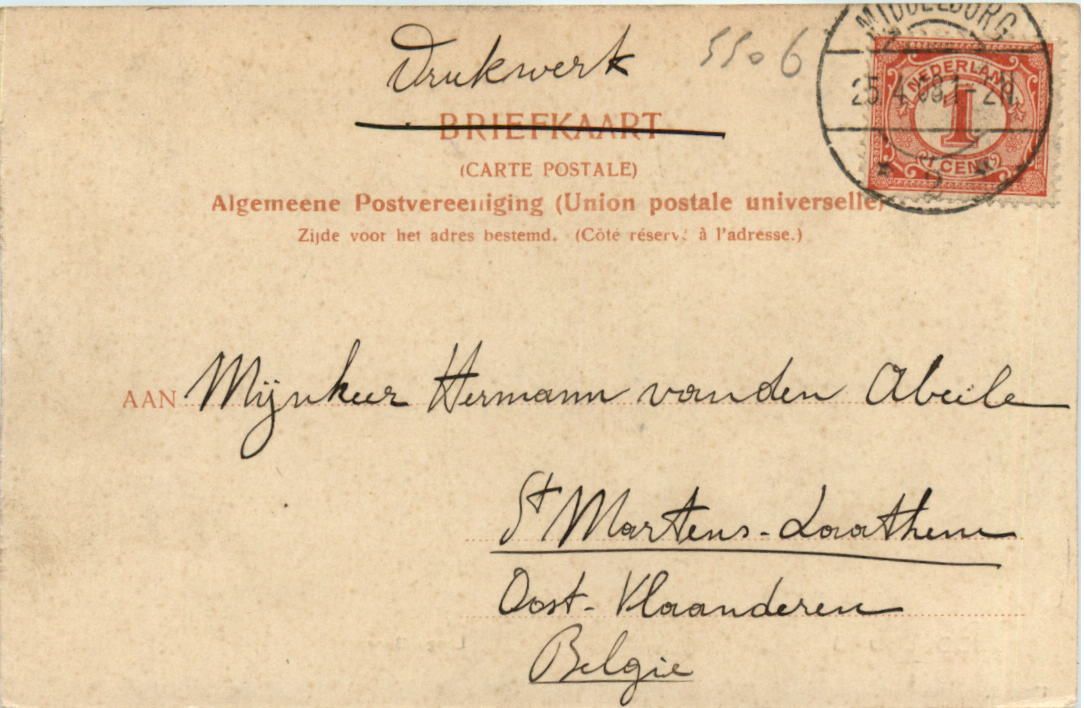 Drukwerk
5506
MIDDELBURG
25.4.08.1-2N
NEDERLAND
1
1 CENT
2
BRIEFKAART
(CARTE POSTALE)
Algemeene Postvereeniging (Union postale universelle)
Zijde voor het adres bestemd. (Côté réservé à l'adresse.)
AAN Mijnheer Hermann vanden Abeile
St Martens-Laathem
Oost-Vlaanderen
Belgie